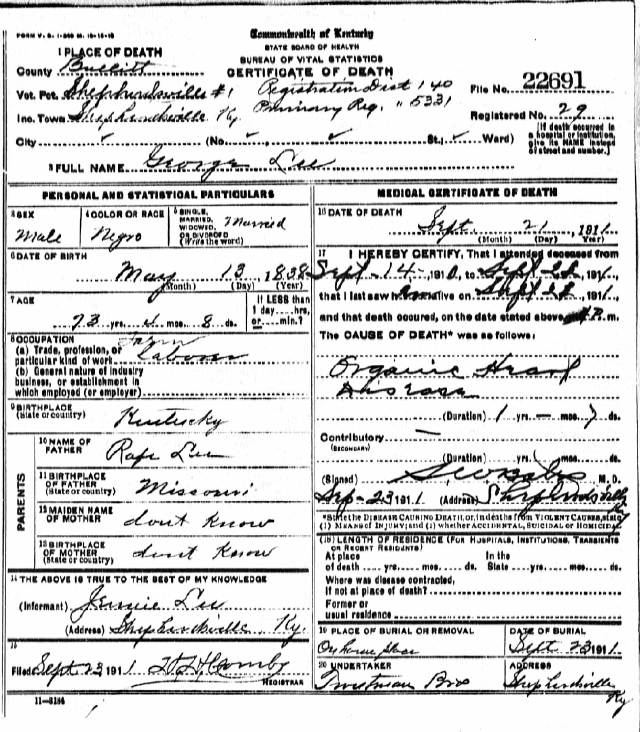 FORM V. S. 1-200 M. 10-15-10
Commonwealth of Kentucky
STATE BOARD OF HEALTH
BUREAU OF VITAL STATISTICS
CERTIFICATE OF DEATH
1 PLACE OF DEATH
County Bullitt
Vot. Pct. Shepherdsville #1 Registration Dist 140
File No. 22691
Inc. Town Shepherdsville Ky. Primary Reg. " 5331
Registered No. 29
City ✓ (No. ✓ ✓ St., ✓ Ward)
[If death occurred in a hospital or institution, give its NAME instead of street and number.]
2 FULL NAME George Lee
PERSONAL AND STATISTICAL PARTICULARS
3 SEX Male
4 COLOR OR RACE Negro
5 SINGLE, MARRIED, WIDOWED, OR DIVORCED (Write the word) Married
6 DATE OF BIRTH
May 13 1838
(Month) (Day) (Year)
7 AGE
73 yrs. 4 mos. 8 ds.
If LESS than 1 day....hrs. or....min.?
8 OCCUPATION
(a) Trade, profession, or particular kind of work Farm Laborer
(b) General nature of industry business, or establishment in which employed (or employer)
9 BIRTHPLACE
(State or country) Kentucky
PARENTS
10 NAME OF FATHER Rafe Lee
11 BIRTHPLACE OF FATHER (State or country) Missouri
12 MAIDEN NAME OF MOTHER dont Know
13 BIRTHPLACE OF MOTHER (State or country) dont Know
14 THE ABOVE IS TRUE TO THE BEST OF MY KNOWLEDGE
(Informant) Jennie Lee
(Address) Shepherdsville Ky.
15
Filed Sept 23 1911
REGISTRAR
11-3184
MEDICAL CERTIFICATE OF DEATH
16 DATE OF DEATH
Sept. 21, 1911
(Month) (Day) (Year)
17 I HEREBY CERTIFY, That I attended deceased from
Sept-14- 1910, to Sept 1911,
that I last saw alive on Sept 1911,
and that death occured, on the date stated above, m.
The CAUSE OF DEATH* was as follows:
Organic Heart
Disease
(Duration) 1 yrs. — mos. 7 ds.
Contributory —
(SECONDARY)
(Duration) yrs. mos. ds.
(Signed) M. D.
Sep-23 1911 (Address) Shepherdsville Ky
*State the DISEASE CAUSING DEATH, or, in deaths from VIOLENT CAUSES, state (1) MEANS OF INJURY; and (2) whether ACCIDENTAL, SUICIDAL or HOMICIDAL
18 LENGTH OF RESIDENCE (FOR HOSPITALS, INSTITUTIONS, TRANSIENTS OR RECENT RESIDENTS)
At place of death .... yrs. .... mos. .... ds. In the State .... yrs. .... mos. .... ds.
Where was disease contracted,
If not at place of death?
Former or
usual residence
19 PLACE OF BURIAL OR REMOVAL
DATE OF BURIAL
Sept 23 1911
20 UNDERTAKER
Bros
ADDRESS
Shepherdsville
Ky